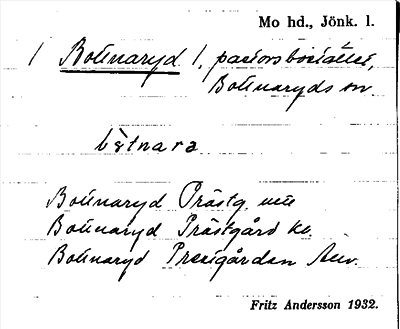 Mo hd., Jönk. l.
1 Bottnaryd 1, pastorsboställe,
Bottnaryds sn.
bòtnara
Bottnaryd Prästg.
Bottnaryd Prästgård
Bottnaryd Prestgården
Fritz Andersson 1932.